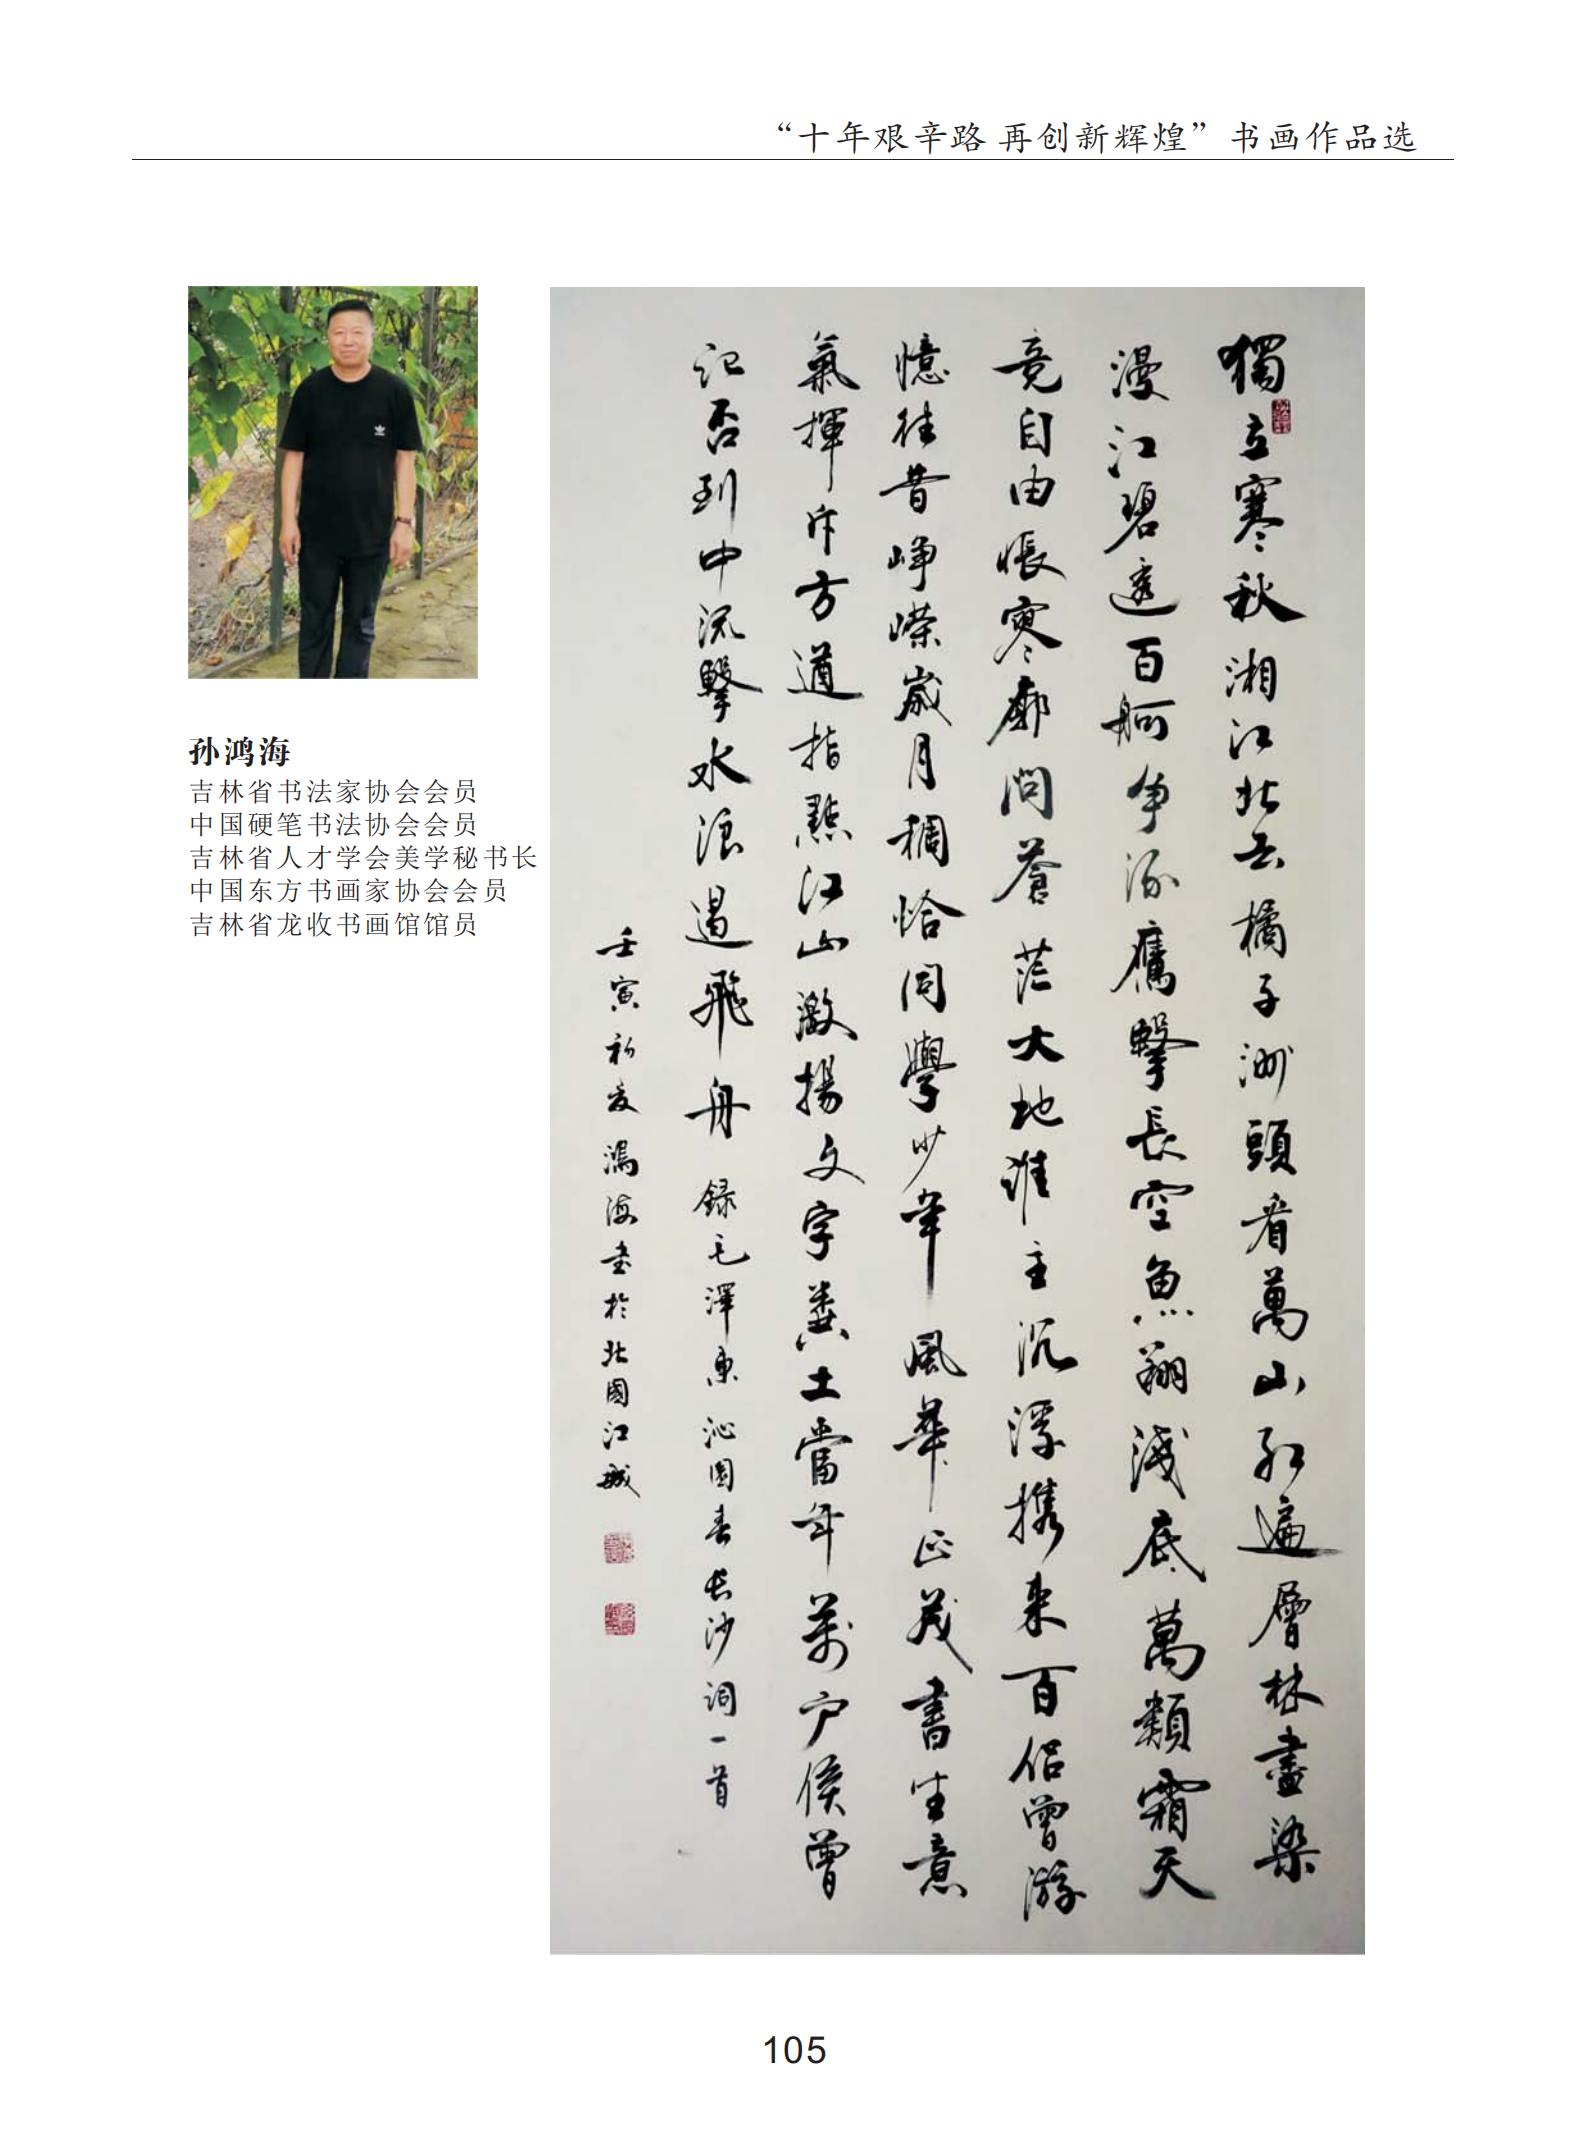 “十年艰辛路 再创新辉煌”书画作品选
孙鸿海
吉林省书法家协会会员
中国硬笔书法协会会员
吉林省人才学会美学秘书长
中国东方书画家协会会员
吉林省龙收书画馆馆员
獨立寒秋湘江北去橘子洲頭看萬山紅遍層林盡染
漫江碧透百舸争流鷹擊長空魚翔淺底萬類霜天
竞自由悵寥廓問蒼茫大地誰主沉浮携来百侣曾游
憶往昔崢嶸歲月稠恰同學少年風華正茂書生意
氣揮斥方遒指點江山激揚文字糞土當年萬户侯曾
记否到中流擊水浪遏飛舟 録毛澤東沁園春长沙词一首
壬寅初夏鴻海书於北國江城
105